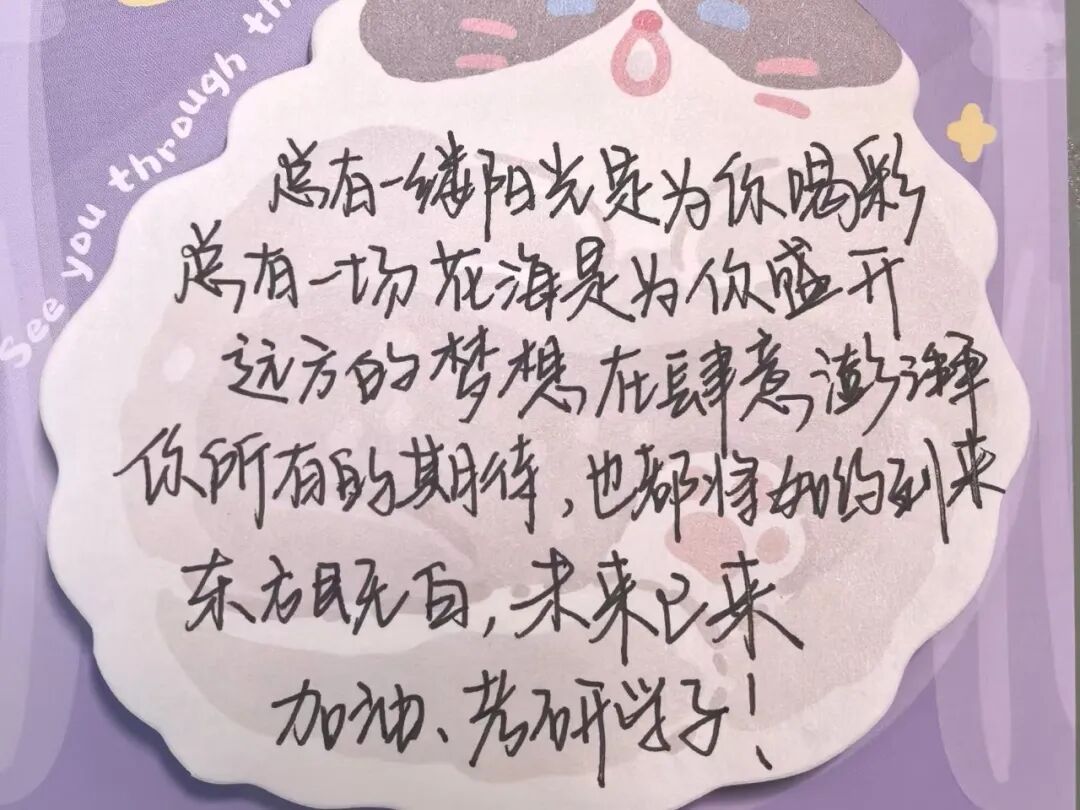 See you through th
总有一缕阳光是为你喝彩
总有一场花海是为你盛开
远方的梦想在肆意澎湃
你所有的期待，也都将如约到来
东方既白，未来已来
加油、考研学子！